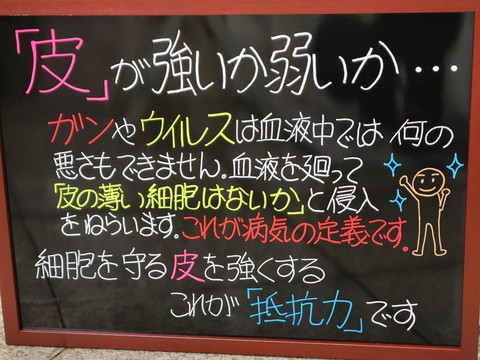 「皮」が強いか弱いか…
ガンやウイルスは血液中では何の
悪さもできません。血液を廻って
「皮の薄い細胞はないか」と侵入
をねらいます。これが病気の定義です。
細胞を守る皮を強くする
これが「抵抗力」です